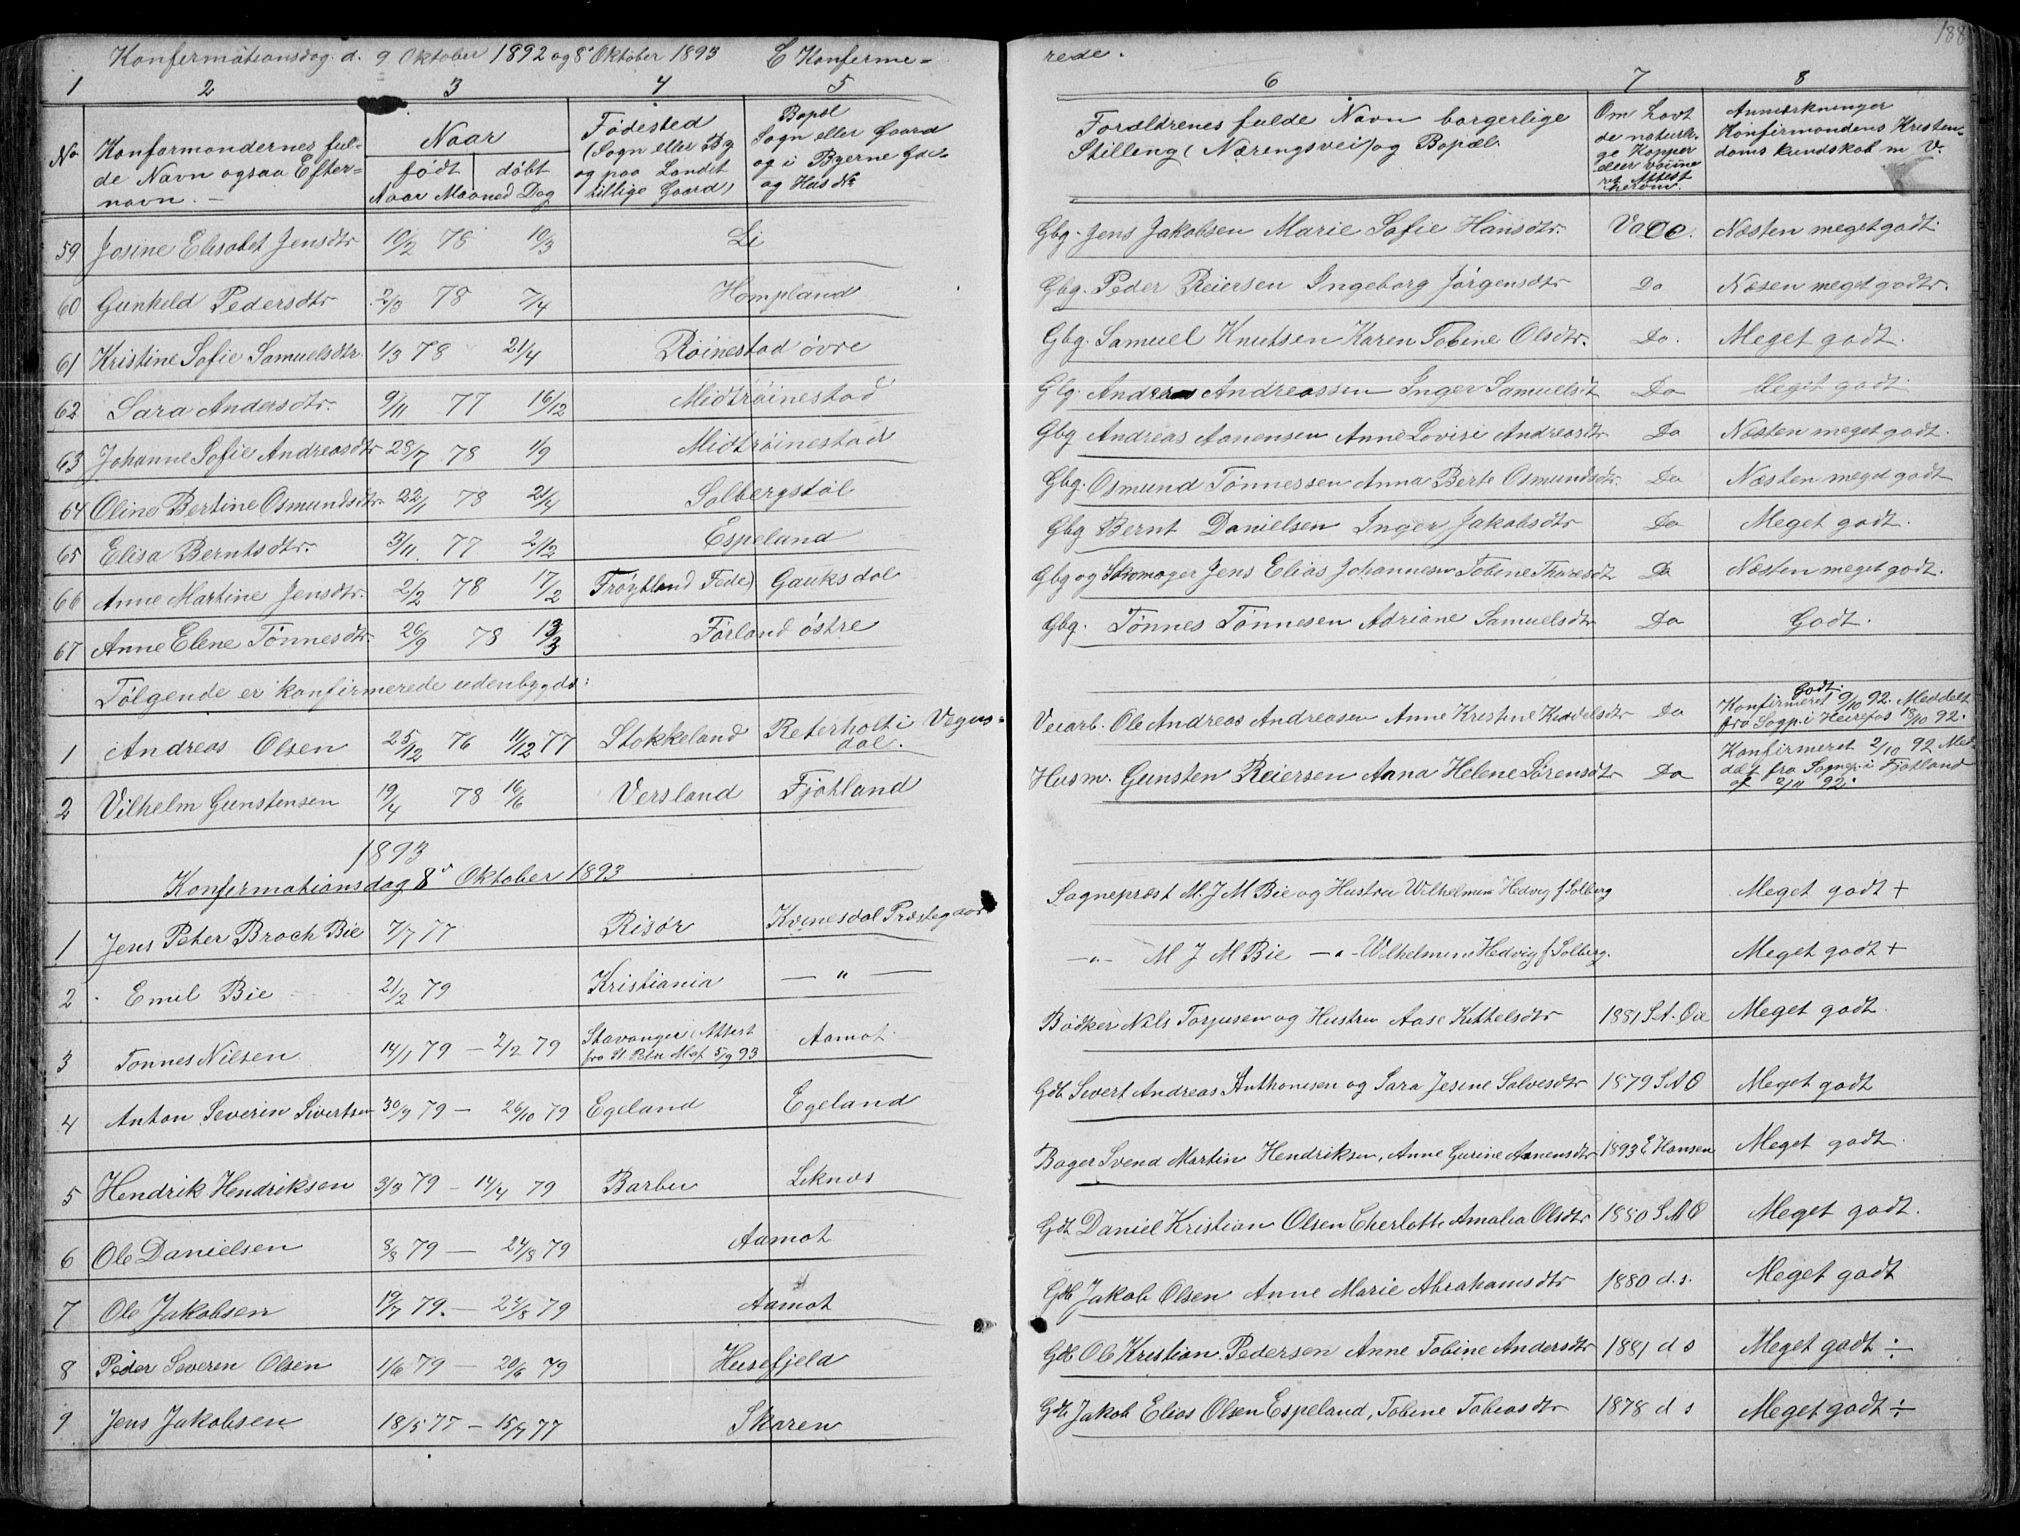 188
Konfermationsdag d. 9 Oktober 1892 og 8 Oktober 1893 C Konferme=
rede.
1 2 3 4 5 6 7 8
No Konfermandernes ful=
de Navn ogsaa Efter=
navn.
Naar
født døbt
Aar Maaned Dag
Fødested
(Sogn eller By
og paa Landet
tillige Gaard)
Bopæl
Sogn eller Gaard
og i Byerne Gde
og Hus No
Forældrenes fulde Navn borgerlige
Stilling (Næringsvei) og Bopæl.
Om havt
de naturli-
ge Kopper
eller vaccine
ret Attest
herom.
Anmærkninger
Konfirmandens Kristen-
domskundskab m V.
59 Josine Elisabet Jensdtr 10/2 78 10/3 Li Gbg. Jens Jakobsen Marie Sofie Hansdtr. Vacc. Næsten meget godt.
60 Gunheld Pedersdtr 2/3 78 7/4 Hompland Gbg. Peder Reiersen Ingeborg Jørgensdtr Do Næsen meget godt.
61 Kristine Sofie Samuelsdtr. 1/3 78 21/4 Røinestad øvre Gbg. Samuel Knutsen Karen Tobine Olsdtr. Do. Meget godt.
62 Sara Andersdtr. 9/11 77 16/12 Midtrøinestad Gbg. Andreas Andreassen Inger Samuelsdt Do Meget godt.
63 Johanne Sofie Andreasdtr 28/7 78 1/9 Midtrøinestad Gbg Andreas Aanensen Anne Lovise Andreasdtr Do Næsten meget godt.
64 Oline Bertine Osmundsdtr. 22/1 78 21/4 Solbergstøl Gbg. Osmund Tønnessen Anna Berte Osmundsdtr. Do Næsten meget godt
65 Elisa Berntsdtr. 3/11. 77 2/12 Espeland Gbg Bernt Danielsen Inger Jakobsdtr Do Meget godt.
66 Anne Martine Jensdtr. 2/2 78 17/2 Trøytland Fede) Gauksdal Gbg og Skomager Jens Elias Johannesen Tobine Tharesdtr Do Næsten meget godt.
67 Anne Elene Tønnesdtr. 26/9 78 13/3 Førland østre Gbg. Tønnes Tønnesen Adriane Samuelsdtr Do Godt.
Følgende er konfirmerede udenbygds:
1 Andreas Olsen 25/12 76 11/12 77 Stokkeland Reterholt i Vegus=
dal. Veiarb. Ole Andreas Andreasen Anne Kristine Kiddelsdtr Do Godt.
Konfirmeret 9/10 92. Meddelt
fra Sogp. i Heirefos 18/10 92.
2 Vilhelm Gunstensen 19/4 78 16/6 Versland Fjotland Husm. Gunsten Reiersen Anna Helene Sørensdtr Do Konfirmeret 2/10 92 Med
delt fra Sognep. i Fjotland
af 2/11 92.
1893
Konfermationsdag 8 Oktober 1893
1 Jens Peter Broch Bie 7/7 77 Risør Kvinesdal Præstegaar Sogneprest M. J M Bie og Hustru Wilhelmine Hedvig f Solberg Meget godt +
2 Emil Bie 21/2 79 Kristiania — " — —"— M J M Bie —"— Wilhelmine Hedvig f Solberg. Meget godt +
3 Tønnes Nilsen 14/1 79 — 2/2 79 Stavanger Attest
fra St. Petri Mgf 5/9 93 Aamot Bødker Nils Torjusen og Hustru Aase Kittelsdtr 1881 S A. Oie Meget godt.
4 Anton Severin Sivertsen 30/9 79 — 26/10 79 Egeland Egeland Gdb. Sivert Andreas Anthonisen og Sara Jesine Salvesdtr 1879 S A O Meget godt
5 Hendrik Hendriksen 3/3 79 — 14/4 79 Barbu Leknes Bager Svend Martin Hendriksen, Anne Gurine Aanensdtr 1893 E Hansen Meget godt.
6 Ole Danielsen 8/8 79 — 24/8 79 Aamot Gdb Daniel Kristian Olsen Cherlotte Amalia Olsdtr 1880 S A O Meget godt.
7 Ole Jakobsen 19/7 79. — 24/8 79 Aamot Gdb Jakob Olsen Anne Marie Abrahamsdtr 1880 d. s. Meget godt
8 Peder Severen Olsen 1/6 79 — 20/6 79 Husefjeld Gdb Ole Kristian Pedersen Anne Tobine Andersdtr 1881 d s Meget godt ÷
9 Jens Jakobsen 18/5 77 — 15/7 77 Skaren Gdb Jakob Elias Olsen Espeland, Tobine Tobiasdtr 1878 d s Meget godt ÷